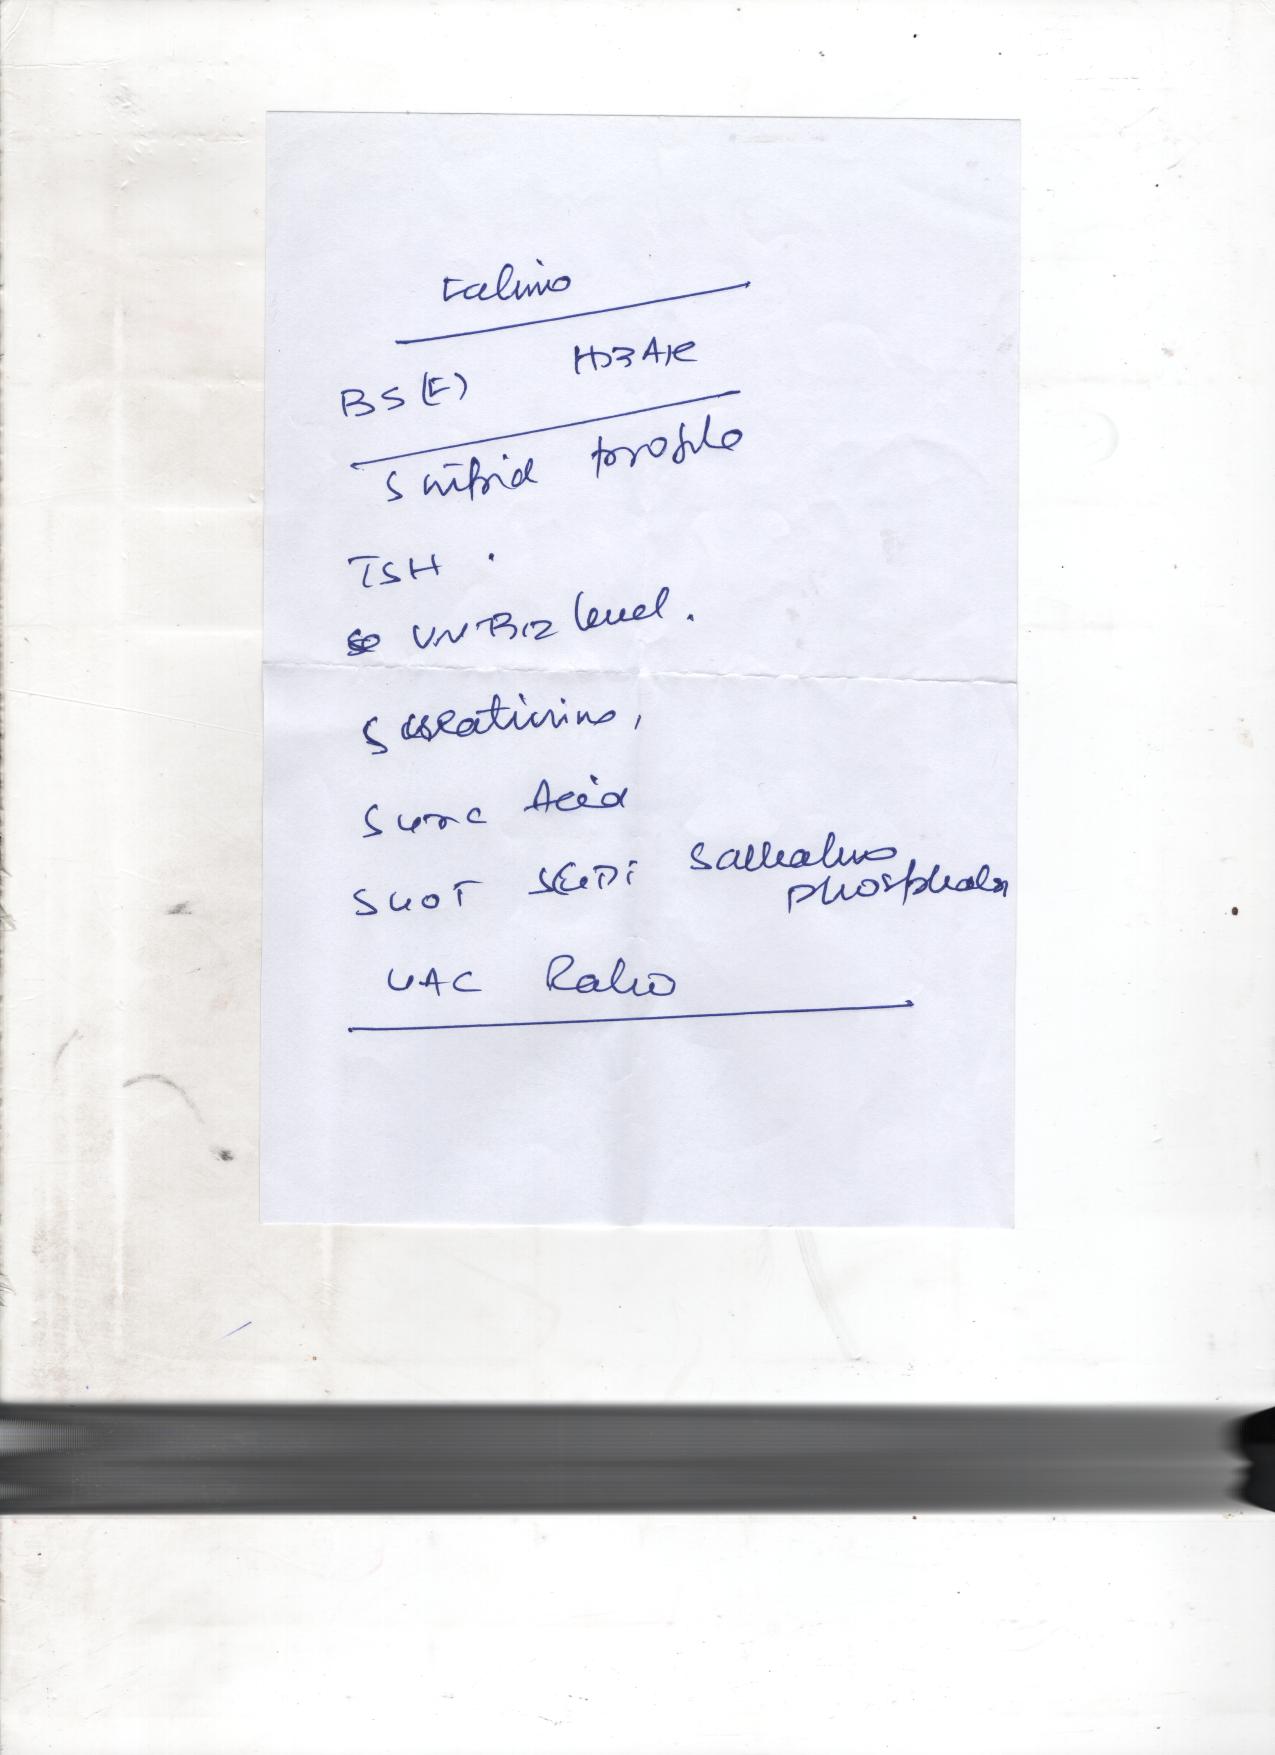 BS(F) HB A1C
S lipid profile
TSH .
Vit B12 level.
S creatinine,
S uric Acid
SGOT SGPT S alkaline
phosphate
UAC Ratio